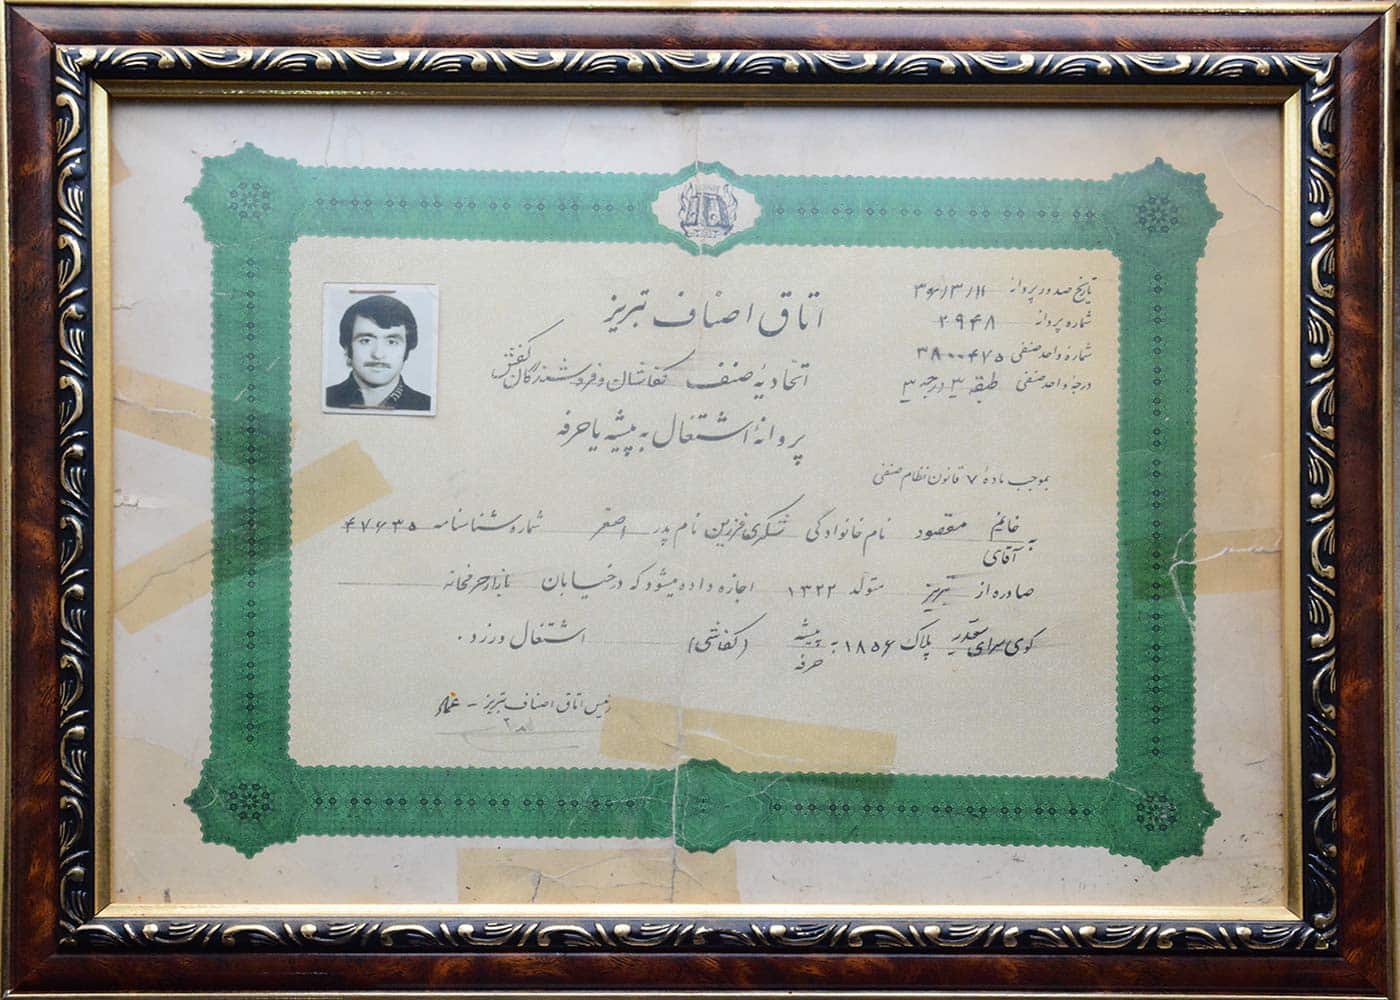 تاریخ صدور پروانه ۳۶/۳/۱۱
شماره پروانه ۲۹۴۸
شماره واحد صنفی ۳۸۰۰۴۷۵
درجهٔ واحد صنفی طبقه ۳ درجه ۳
اتاق اصناف تبریز
اتحادیهٔ صنف کفاشان و فروشندگان کفش
پروانهٔ اشتغال به پیشه یا حرفه
بموجب مادهٔ ۷ قانون نظام صنفی
به خانم آقای مقصود نام خانوادگی تشکری فرزین نام پدر اصغر شماره شناسنامه ۴۷۶۳۵
صادره از تبریز متولد ۱۳۲۲ اجازه داده میشود که در خیابان بازار حرمخانه
کوی سرای پلاک ۱۸۵۶ به پیشه حرفه (کفاشی) اشتغال ورزد.
رئیس اتاق اصناف تبریز -